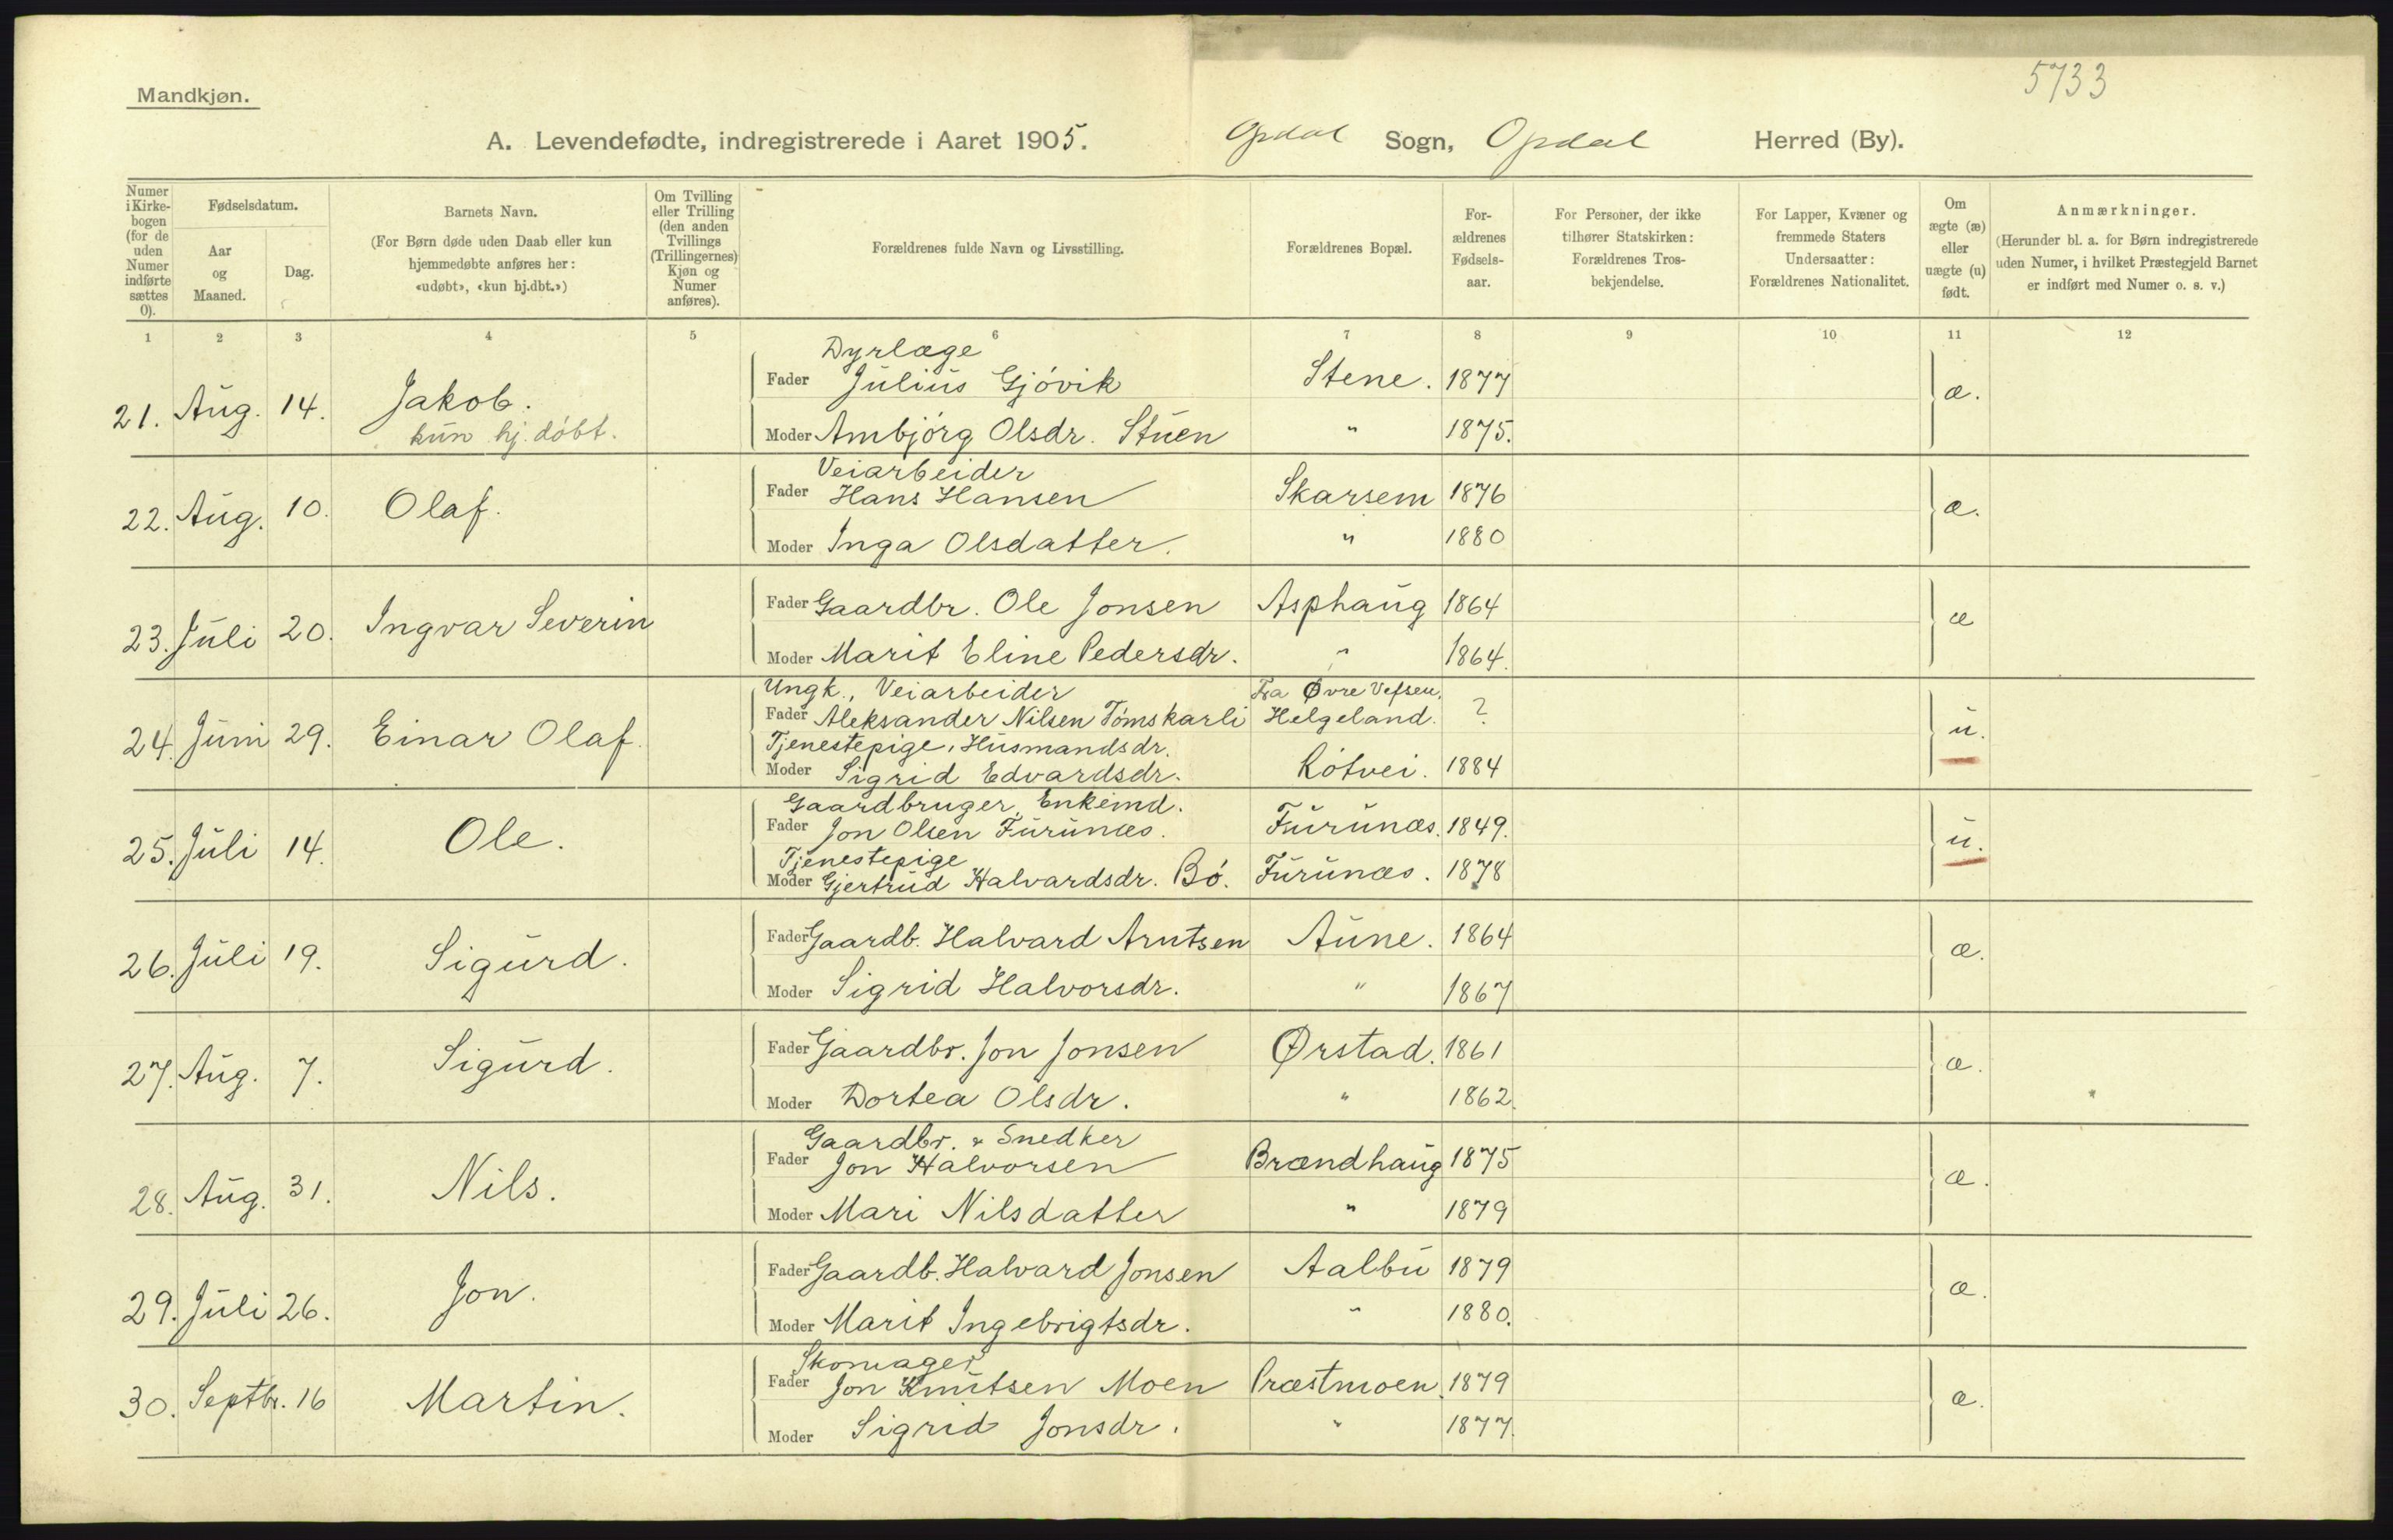 5733
Mandkjøn.
A. Levendefødte, indregistrerede i Aaret 1905. Opdal Sogn, Opdal Herred (By).
Numer i Kirkebogen (for de uden Numer indførte sættes 0).
Fødselsdatum.
Aar og Maaned.
Dag.
Barnets Navn.
(For Børn døde uden Daab eller kun hjemmedøbte anføres her: «udøbt», «kun hj.dbt.»)
Om Tvilling eller Trilling (den anden Tvillings (Trillingernes) Kjøn og Numer anføres).
Forældrenes fulde Navn og Livsstilling.
Forældrenes Bopæl.
Forældrenes Fødselsaar.
For Personer, der ikke tilhører Statskirken: Forældrenes Trosbekjendelse.
For Lapper, Kvæner og fremmede Staters Undersaatter: Forældrenes Nationalitet.
Om ægte (æ) eller uægte (u) født.
Anmærkninger.
(Herunder bl. a. for Børn indregistrerede uden Numer, i hvilket Præstegjeld Barnet er indført med Numer o. s. v.)
1 2 3 4 5 6 7 8 9 10 11 12
Dyrlæge
21. Aug. 14. Jakob. Fader Julius Gjövik Stene. 1877 æ.
kun hj. döbt. Moder Ambjörg Olsdr. Stuen " 1875.
Veiarbeider
22. Aug. 10. Olaf. Fader Hans Hansen Skarsem 1876 æ.
Moder Inga Olsdatter. " 1880
23. Juli 20. Ingvar Severin Fader Gaardbr. Ole Jonsen Asphaug 1864 æ
Moder Marit Eline Pedersdr. " 1864.
Ungk., Veiarbeider Fra Øvre Vefsen,
24. Juni 29. Einar Olaf. Fader Aleksander Nilsen Tömskarli Helgeland. ? u.
Tjenestepige, Husmandsdr.
Moder Sigrid Edvardsdr. Rötvei. 1884
Gaardbruger, Enkemd.
25. Juli 14. Ole. Fader Jon Olsen Furunæs. Furunæs. 1849. u.
Tjenestepige
Moder Gjertrud Halvardsdr. Bö. Furunæs. 1878
26. Juli 19. Sigurd. Fader Gaardb. Halvard Arntsen Aune. 1864 æ.
Moder Sigrid Halvorsdr. " 1867
27. Aug. 7. Sigurd. Fader Gaardbr. Jon Jonsen Ørstad. 1861 æ.
Moder Dortea Olsdr. " 1862.
Gaardbr. & Snedker
28. Aug. 31. Nils. Fader Jon Halvorsen Brændhaug 1875 æ.
Moder Mari Nilsdatter " 1879
29. Juli 26. Jon. Fader Gaardb. Halvard Jonsen Aalbu 1879 æ.
Moder Marit Ingebrigtsdr. " 1880.
Skomager
30. Septbr. 16 Martin. Fader Jon Knutsen Moen Præstmoen. 1879 æ.
Moder Sigrid Jonsdr. " 1877.